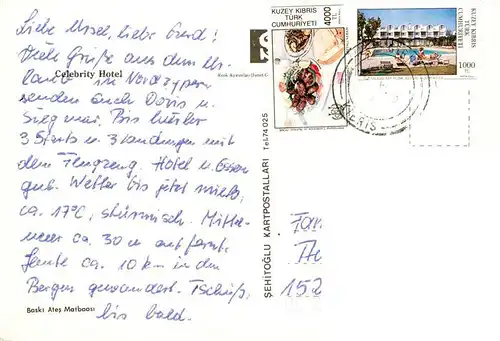 Liebe Ursel, liebe Gerd!
Viele Grüße aus dem Ur-
laub in Nordzypern
Celebrity Hotel
senden euch Doris u.
Siegmar. Bis hierher
3 Starts u. 3 Landungen mit
dem Flugzeug. Hotel u. Essen
gut. Wetter bis jetzt mies,
ca. 17°C, stürmisch. Mittel-
meer ca. 30 m entfernt.
Heute ca. 10 km in den
Bergen gewandert. Tschüß,
bis bald.
Baskı Ateş Matbaası
ŞEHİTOĞLU KARTPOSTALLARI tel.74 025
KUZEY KIBRIS
TÜRK
CUMHURİYETİ
4000
KUZEY KIBRIS
TÜRK
CUMHURİYETİ
1000
TL
Fam.
152